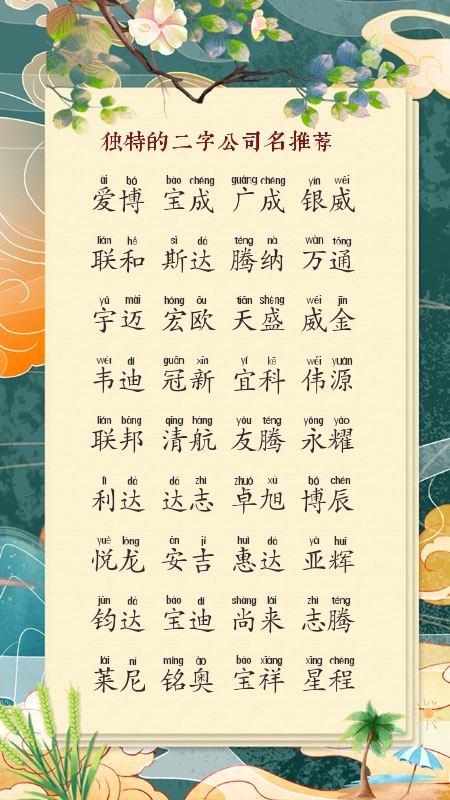 独特的二字公司名推荐
ài bó bǎo chéng guǎng chéng yín wēi
爱博 宝成 广成 银威
lián hé sī dá téng nà wàn tōng
联和 斯达 腾纳 万通
yǔ mài hóng ōu tiān shèng wēi jīn
宇迈 宏欧 天盛 威金
wéi dí guān xīn yí kē wěi yuán
韦迪 冠新 宜科 伟源
lián bāng qīng háng yǒu téng yǒng yào
联邦 清航 友腾 永耀
lì dá dá zhì zhuó xù bó chén
利达 达志 卓旭 博辰
yuè lóng ān jí huì dá yà huī
悦龙 安吉 惠达 亚辉
jūn dá bǎo dí shàng lái zhì téng
钧达 宝迪 尚来 志腾
lái ní míng ào bǎo xiáng xīng chéng
莱尼 铭奥 宝祥 星程